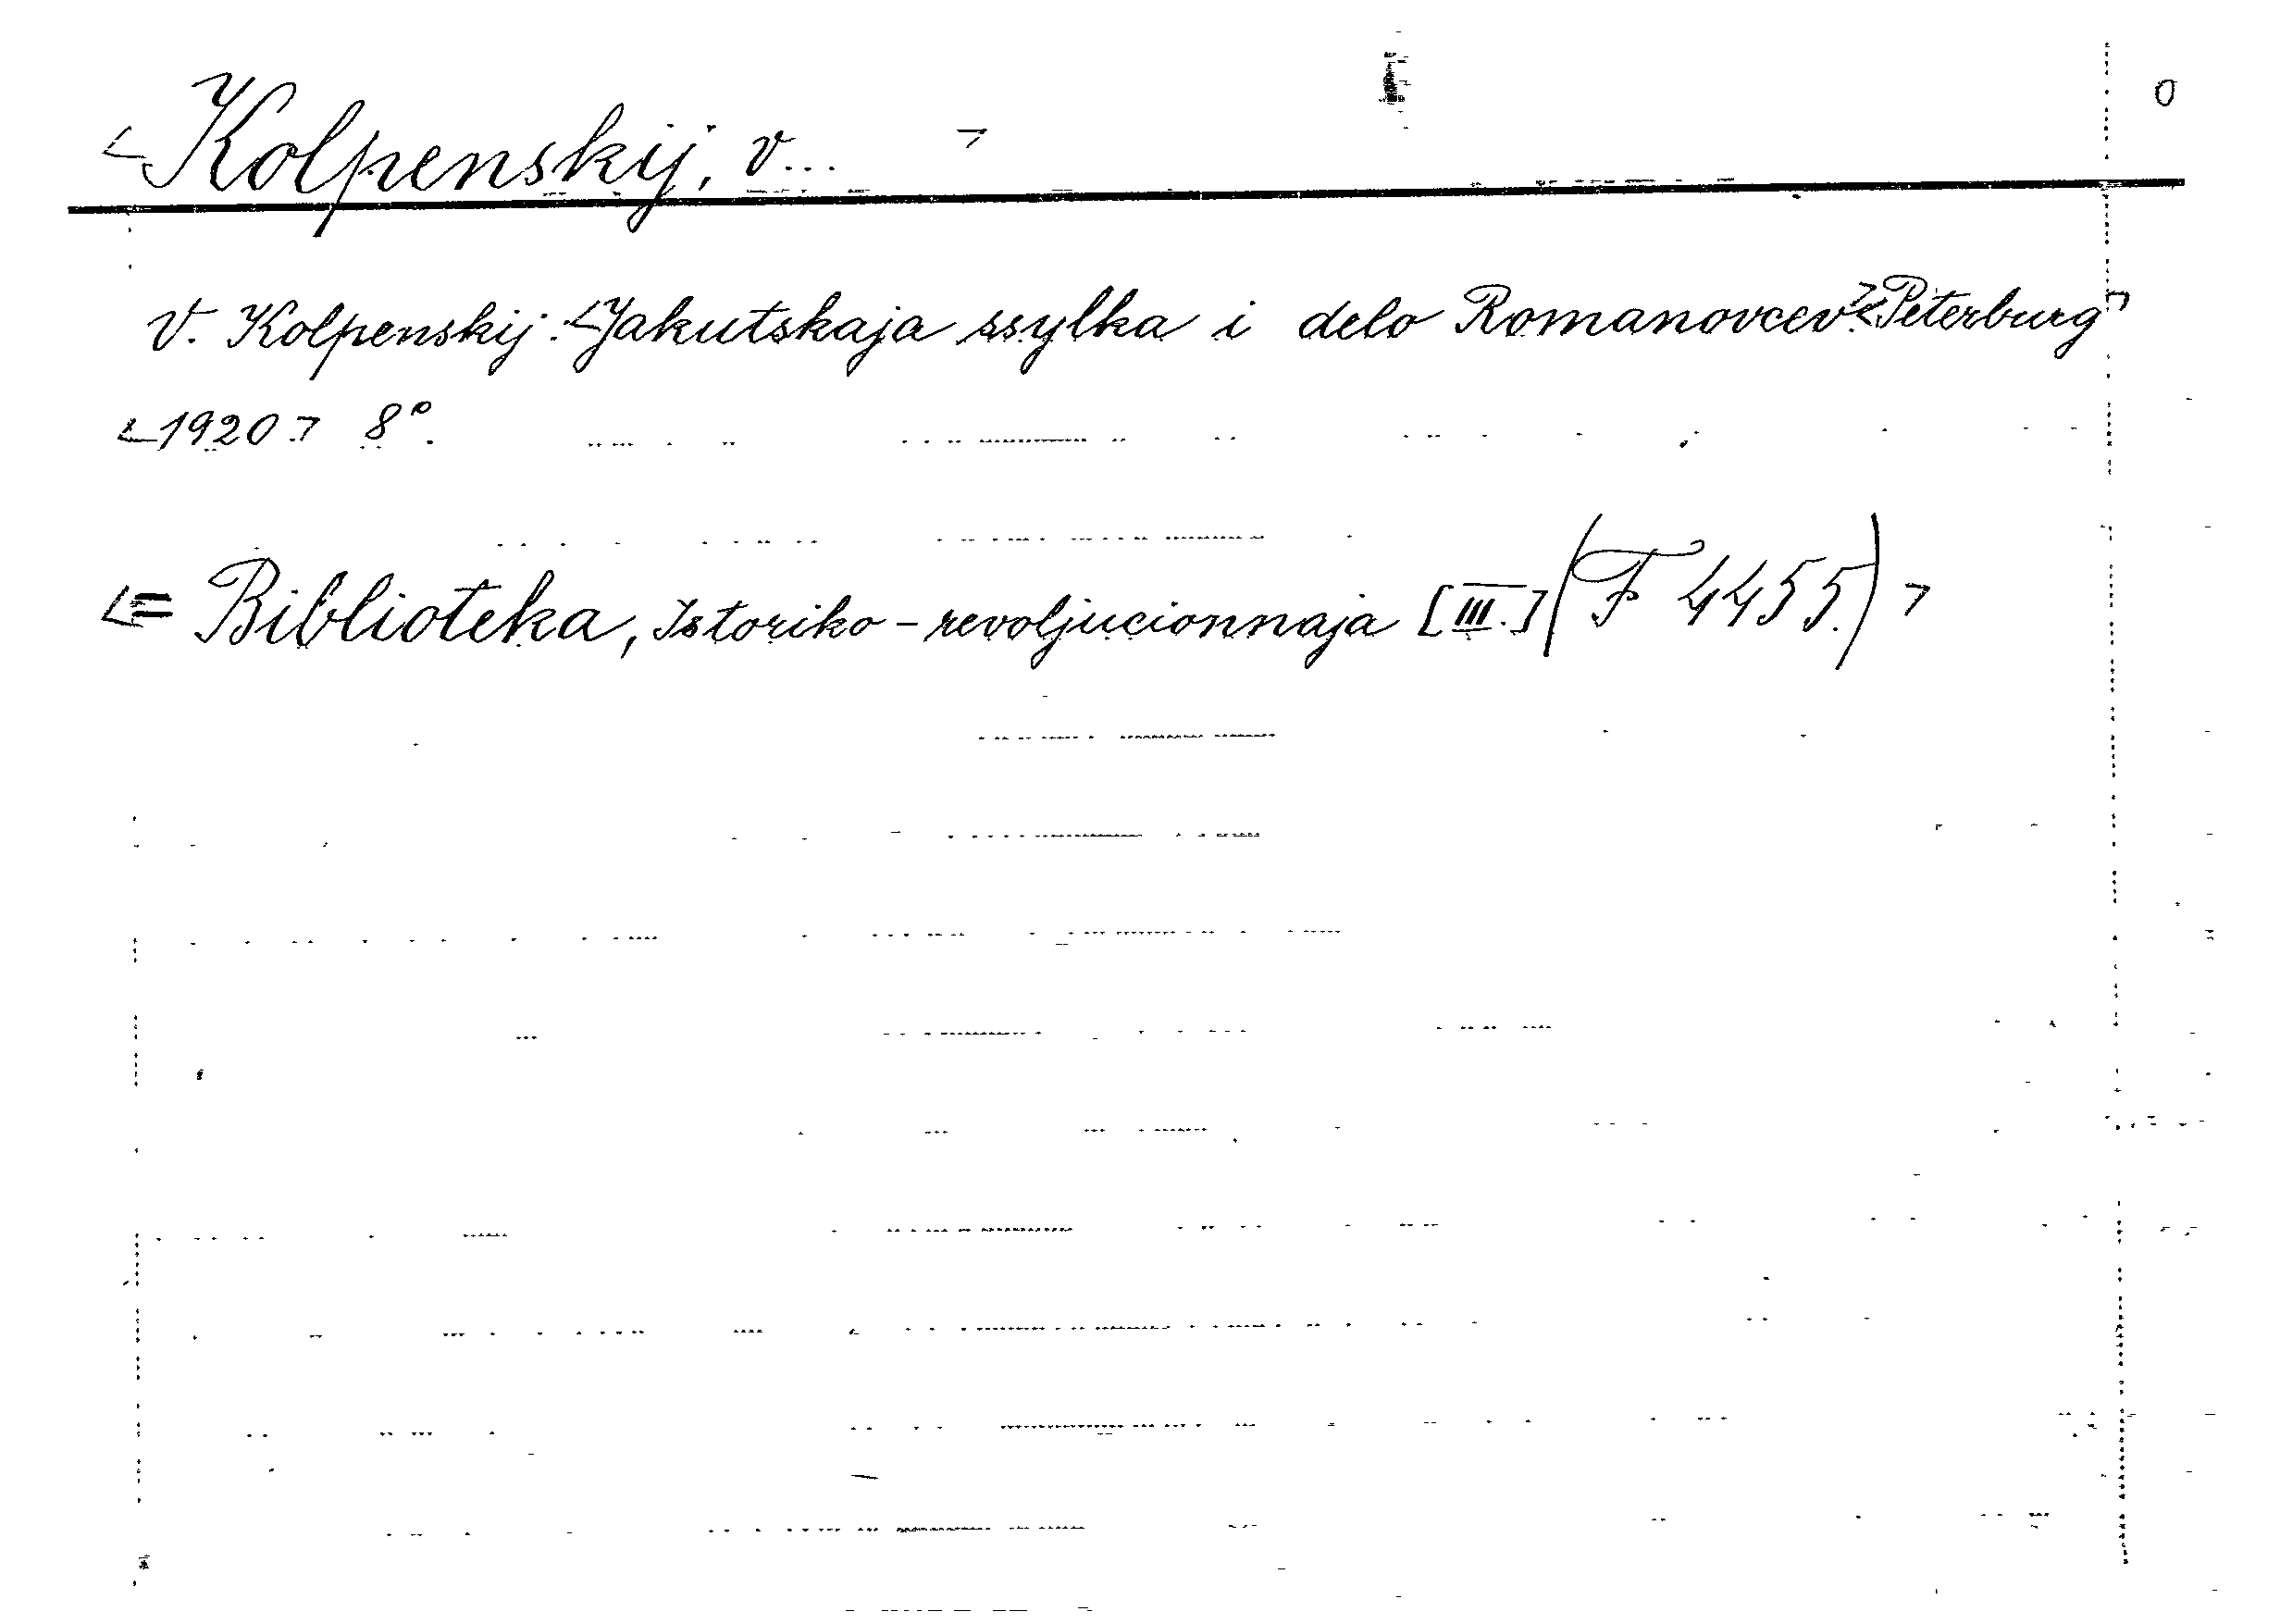 0
<Kolpenskij, V... >
V. Kolpenskij: <Jakutskaja ssylka i delo Romanovcev.> <Peterburg>
<1920> 8°.
<= Biblioteka, Istoriko-revoljucionnaja [III.] (F 4455.) >